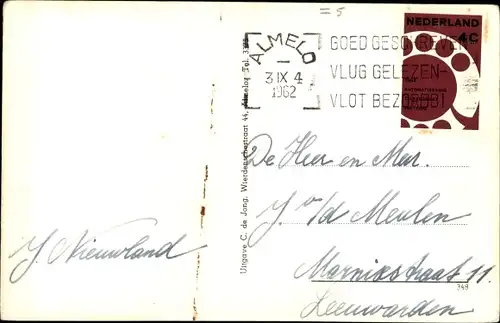 = 5
NEDERLAND
4c
ALMELO
3 IX 4
1962
GOED GESCHREVEN
VLUG GELEZEN-
VLOT BEZORGD!
Uitgave C. de Jong, Wierdenschestraat 44, Almelo, Tel.
De Heer en Mevr.
J. v/d Meulen
Marnixstraat 11
Leeuwarden
349
J. Nieuwland